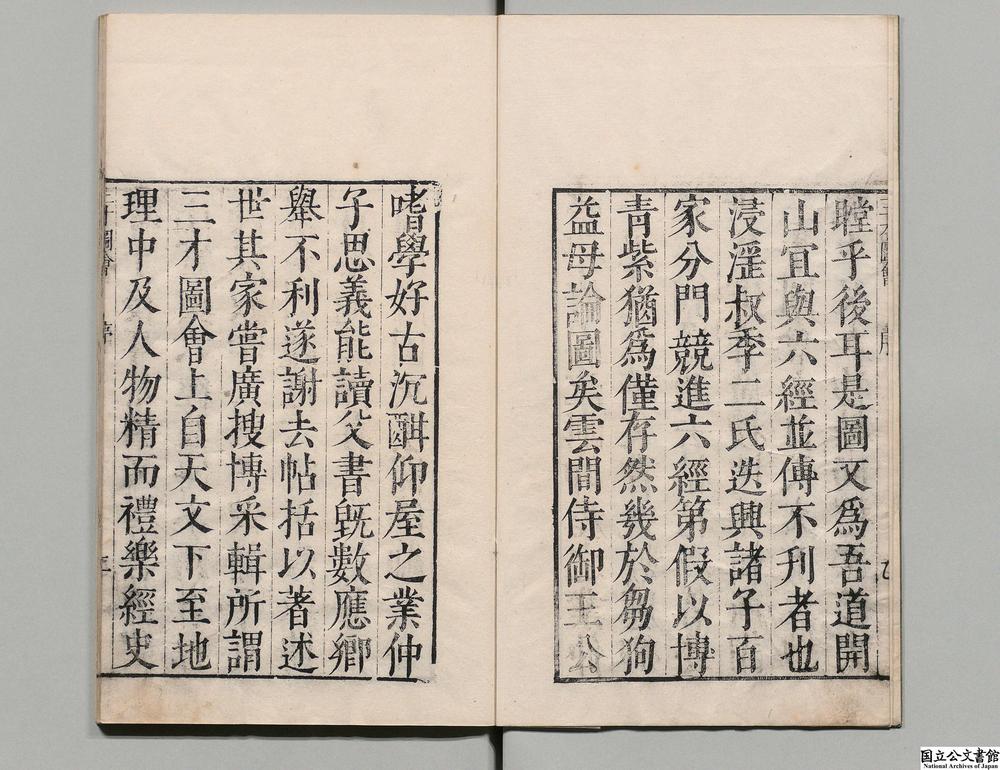 瞠乎後耳是圖又爲吾道開
山宜與六經並傳不刋者也
浸淫叔季二氏迭興諸子百
家分門競進六經第假以博
青紫猶爲僅存然幾於芻狗
益毋論圖矣雲間侍御王公
嗜學好古沉酣仰屋之業仲
子思義能讀父書旣數應鄉
舉不利遂謝去帖括以著述
世其家嘗廣搜博采輯所謂
三才圖會上自天文下至地
理中及人物精而禮樂經史
国立公文書館
National Archives of Japan